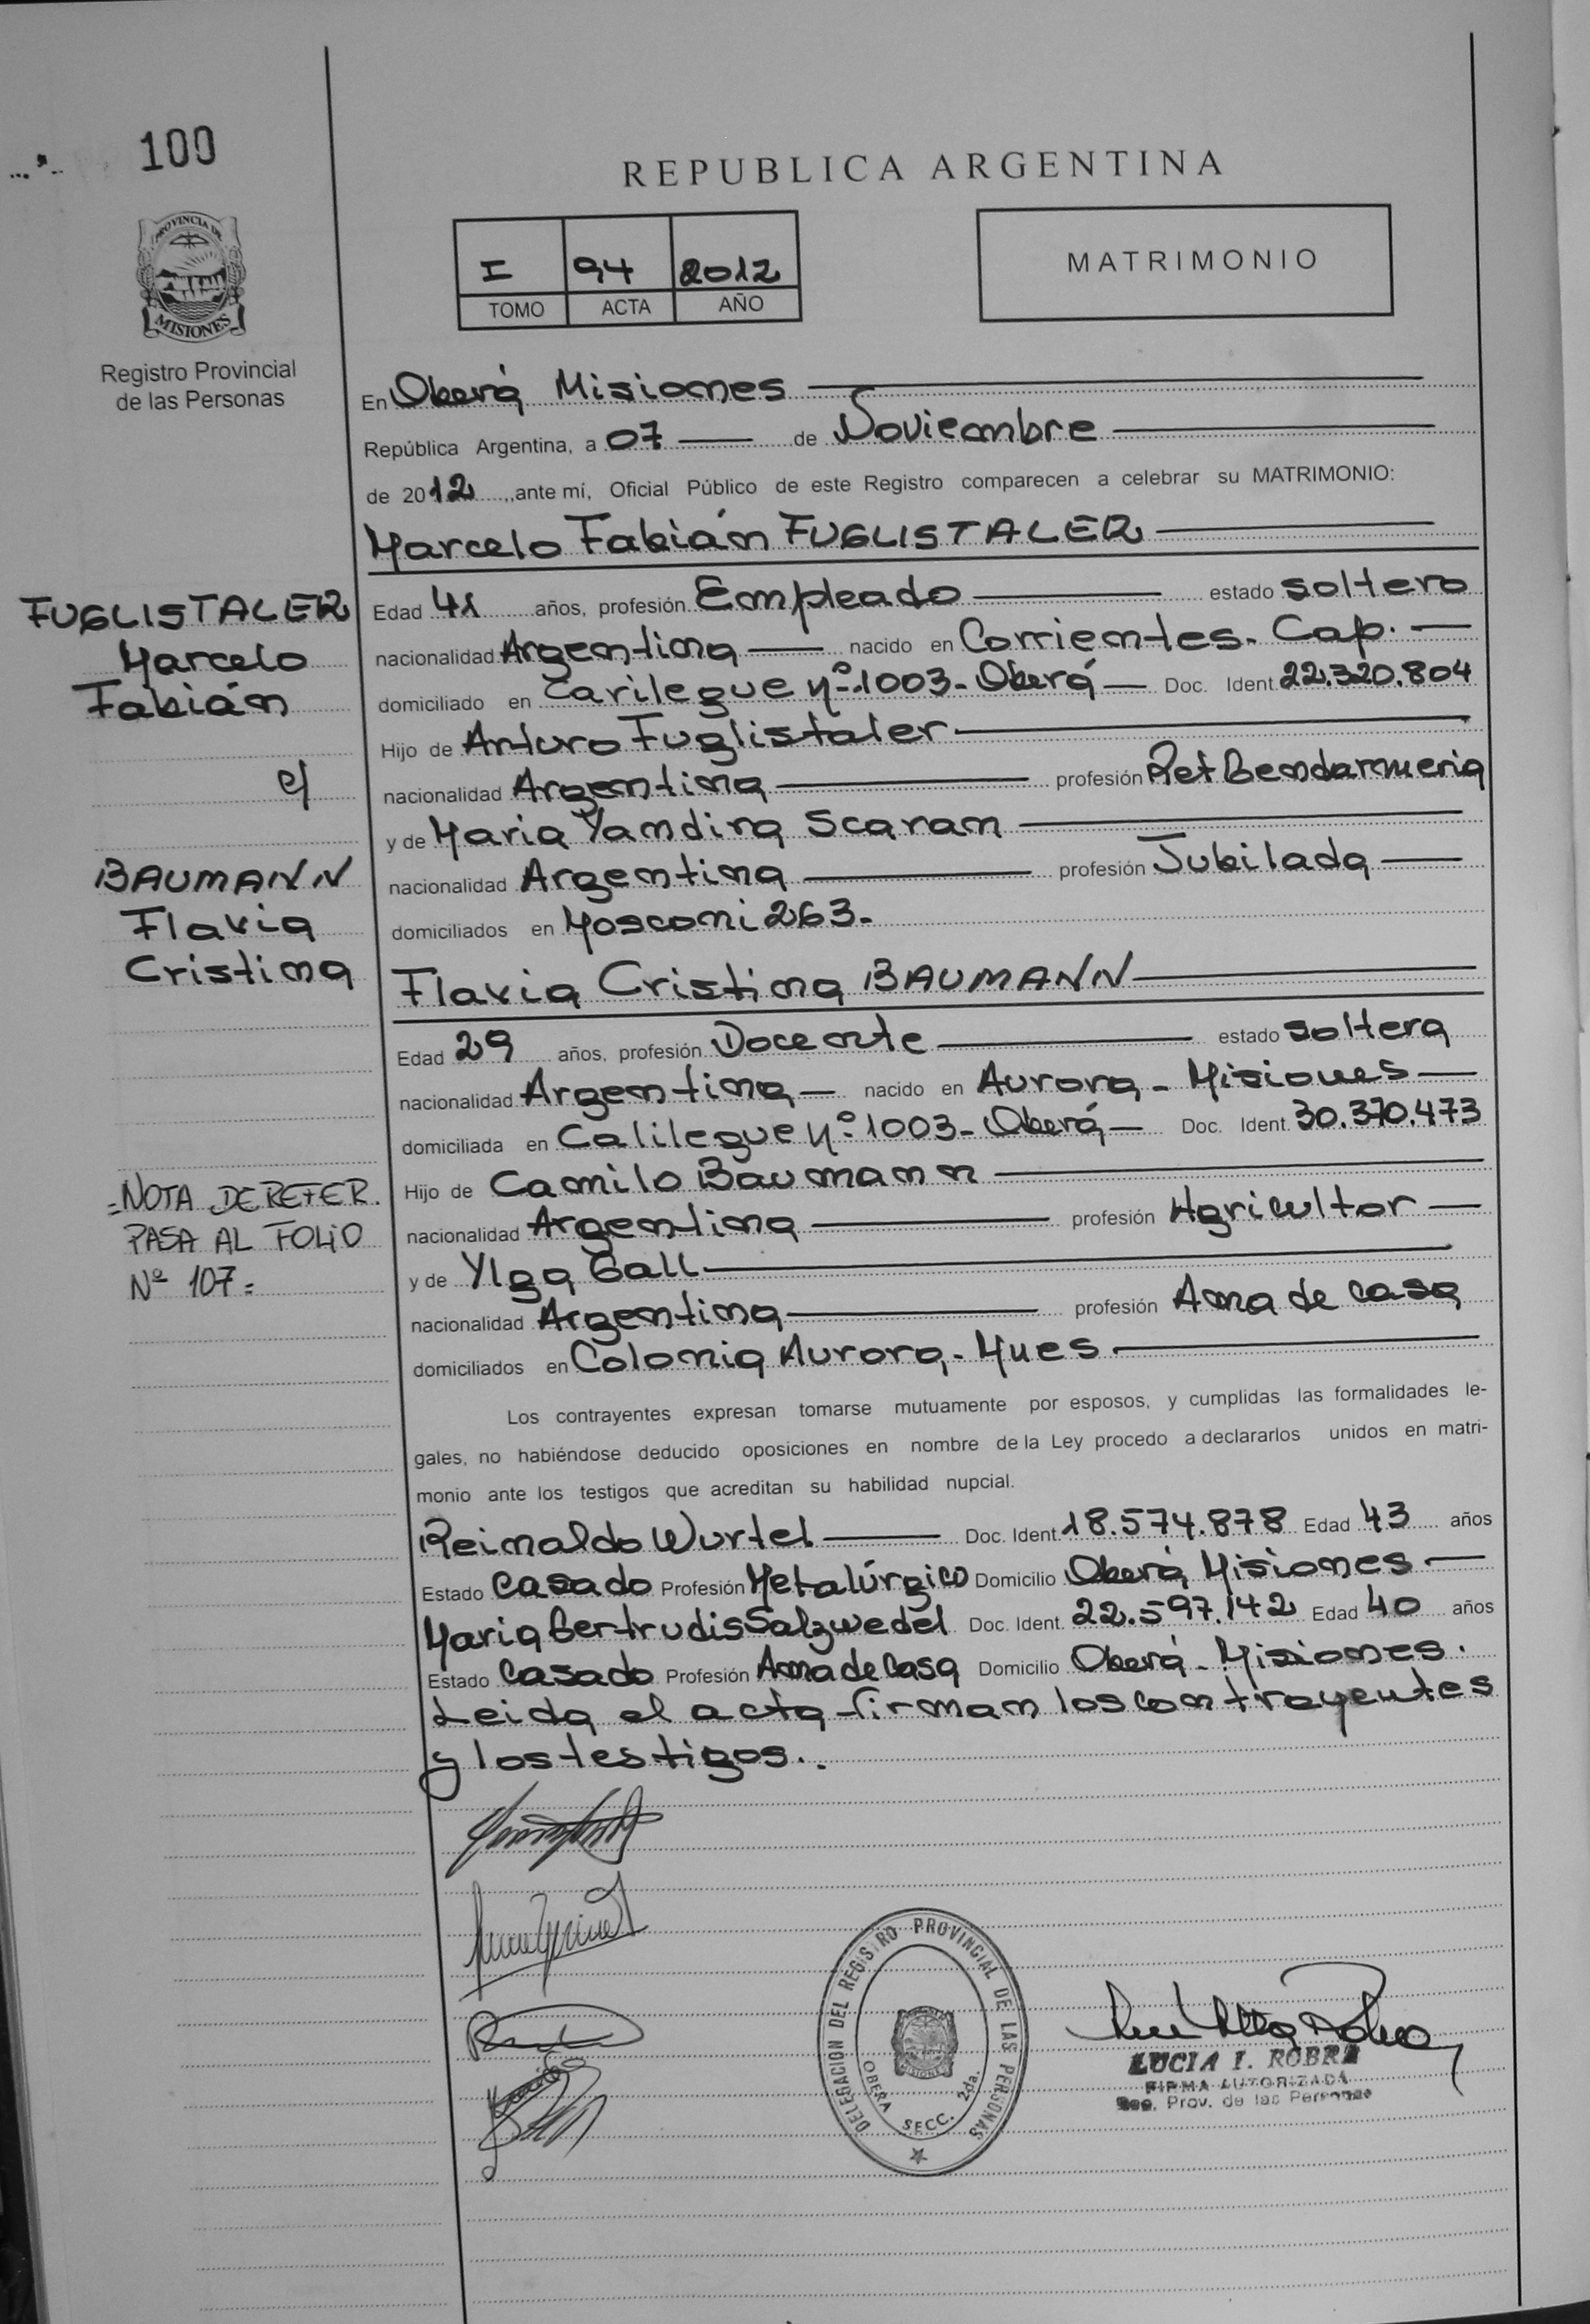 100
REPUBLICA ARGENTINA
PROVINCIA DE
MISIONES
Registro Provincial
de las Personas
I 94 2012
TOMO ACTA AÑO
MATRIMONIO
En Oberá Misiones
República Argentina, a 07 de Noviembre
de 2012, ante mí, Oficial Público de este Registro comparecen a celebrar su MATRIMONIO:
Marcelo Fabián FUGLISTALER
FUGLISTALER
Marcelo
Fabián
c/
BAUMANN
Flavia
Cristina
Edad 41 años, profesión Empleado estado soltero
nacionalidad Argentina nacido en Corrientes. Cap.
domiciliado en Carilegue Nº 1003 - Oberá Doc. Ident. 22.320.804
Hijo de Arturo Fuglistaler
nacionalidad Argentina profesión Ret Gendarmeria
y de Maria Yandira Scaram
nacionalidad Argentina profesión Jubilada
domiciliados en Mosconi 263.
Flavia Cristina BAUMANN
Edad 29 años, profesión Docente estado soltera
nacionalidad Argentina nacido en Aurora - Misiones
domiciliada en Calilegue Nº 1003 - Oberá Doc. Ident. 30.370.473
Hijo de Camilo Baumann
nacionalidad Argentina profesión Agricultor
y de Ylga Gall
nacionalidad Argentina profesión Ama de casa
domiciliados en Colonia Aurora - Mnes
= NOTA DE REFER.
PASA AL FOLIO
Nº 107 =
Los contrayentes expresan tomarse mutuamente por esposos, y cumplidas las formalidades le-
gales, no habiéndose deducido oposiciones en nombre de la Ley procedo a declararlos unidos en matri-
monio ante los testigos que acreditan su habilidad nupcial.
Reinaldo Wurtel Doc. Ident. 18.574.878 Edad 43 años
Estado Casado Profesión Metalúrgico Domicilio Oberá, Misiones
Maria Gertrudis Salzwedel Doc. Ident. 22.597.142 Edad 40 años
Estado Casado Profesión Ama de Casa Domicilio Oberá - Misiones.
Leida el acta firman los contrayentes
y los testigos.
DELEGACION DEL REGISTRO PROVINCIAL DE LAS PERSONAS
OBERA SECC. 2da.
LUCIA I. ROBRE
FIRMA AUTORIZADA
Reg. Prov. de las Personas